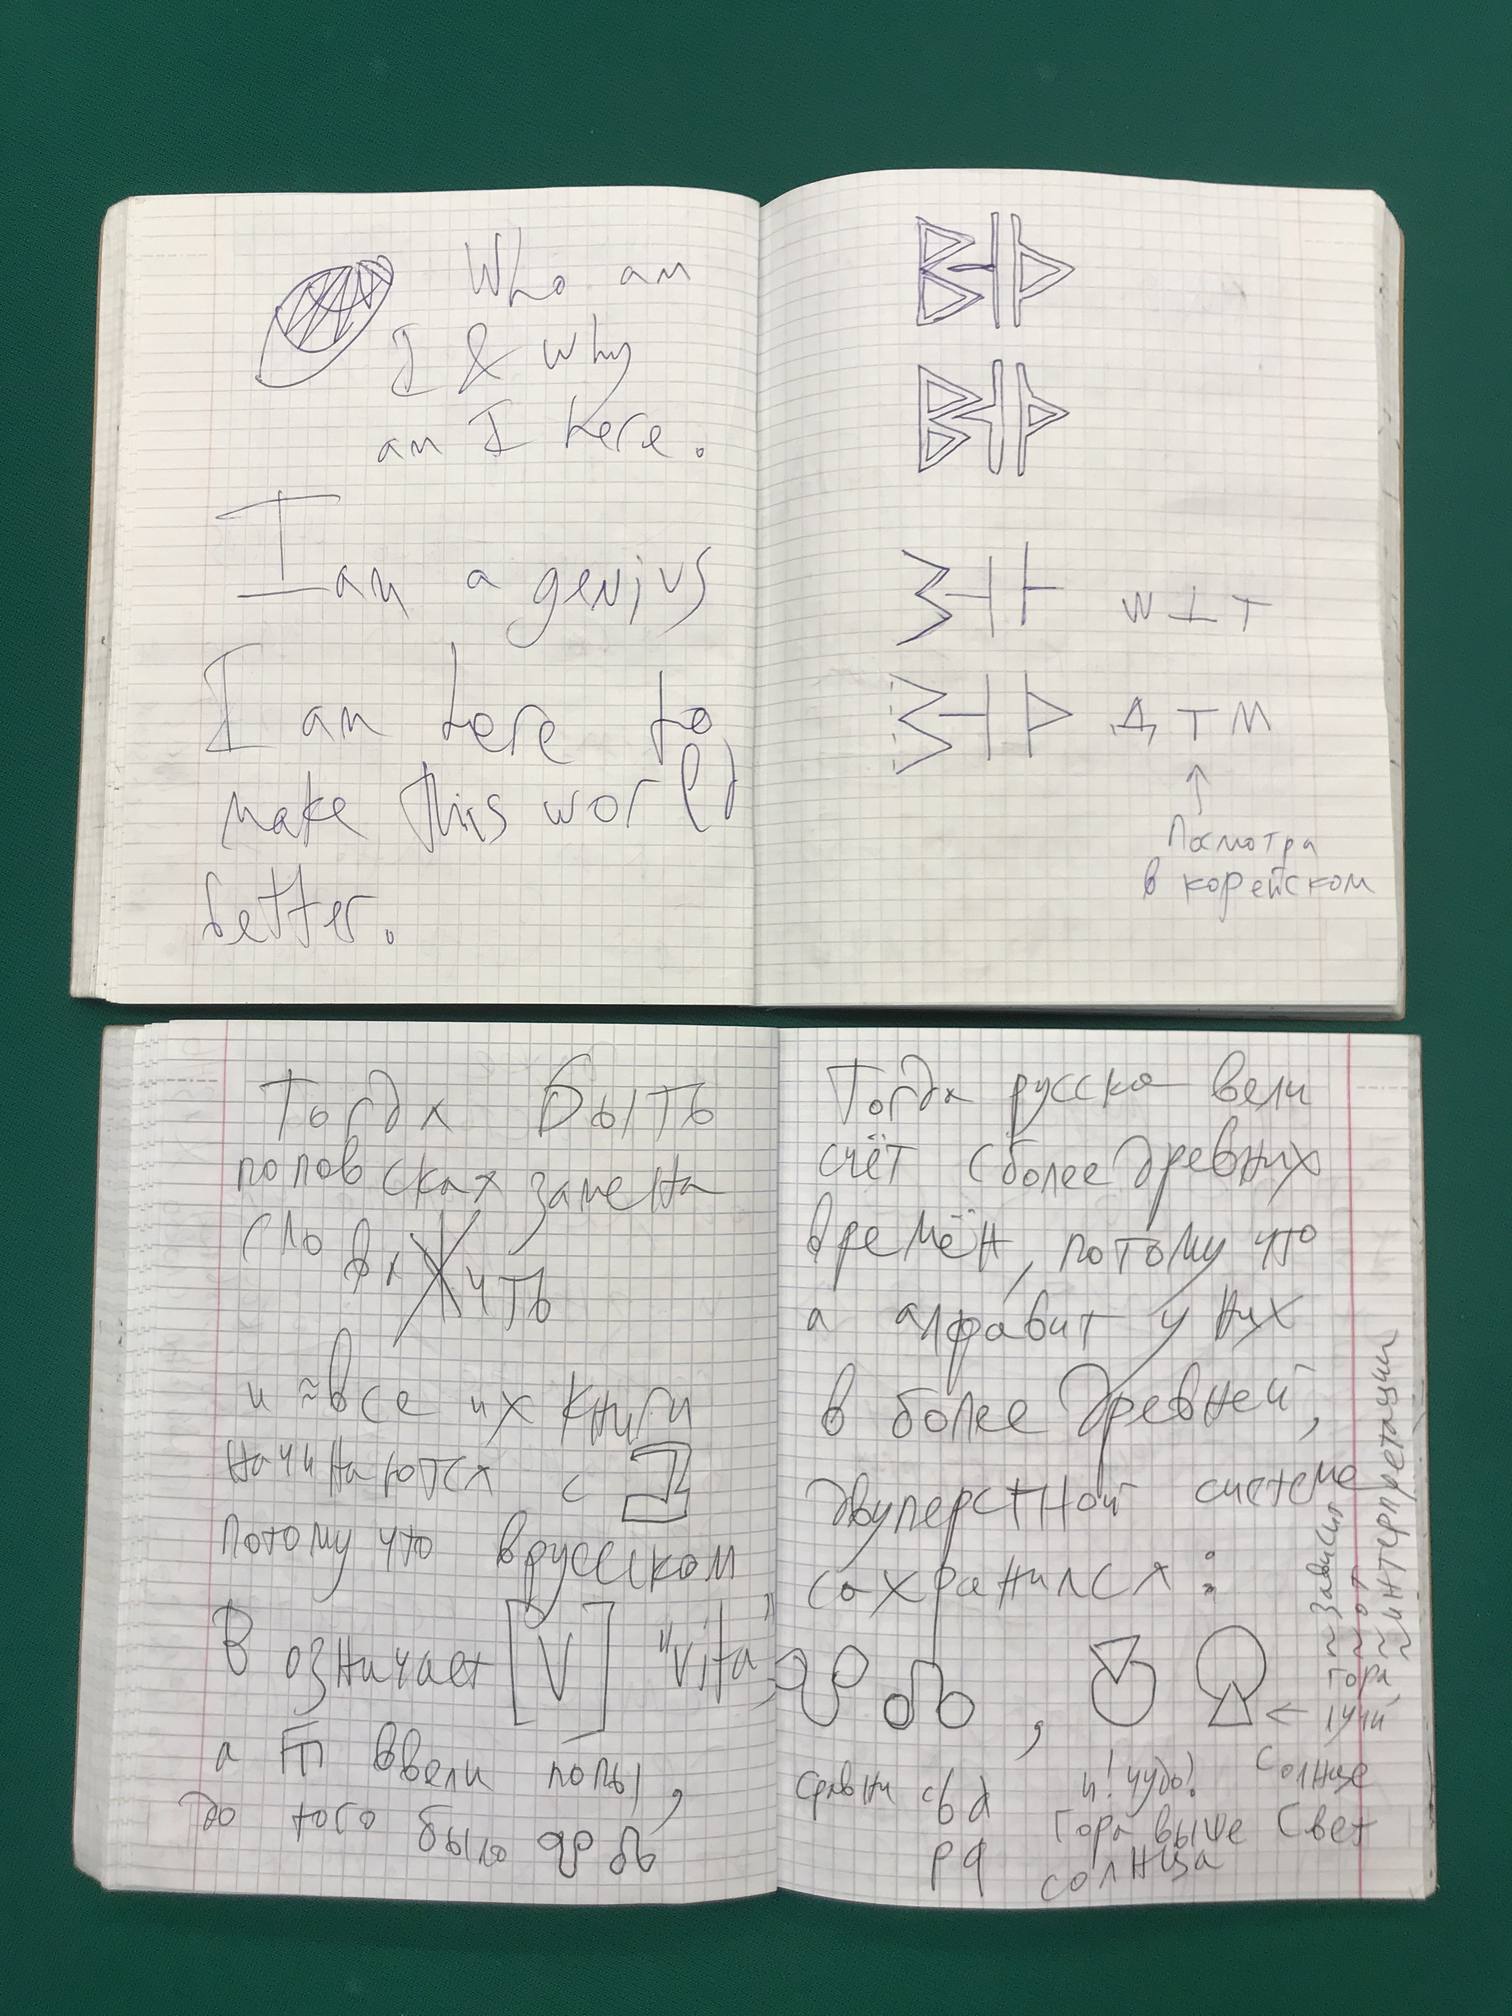 Who am
I & why
am I here.
I am a genius
I am here to
make this world
better.
WIT
ДТМ
в корейском
Тогда Быть
поповская замена
слова Жить
и ≈все их книги
начинаются с
потому что в русском
В означает [V] "vita"
а ввели попы,
до того было
Тогда русско вели
счёт с более древних
времён, потому что
а алфавит у них
в более древней,
двуперстной системе
сохранился:
Сравни с b d
p q
и! чудо!
Гора выше
солнца
Солнце
Свет
← лучи
~ зависит
~ от
~ интерпретации